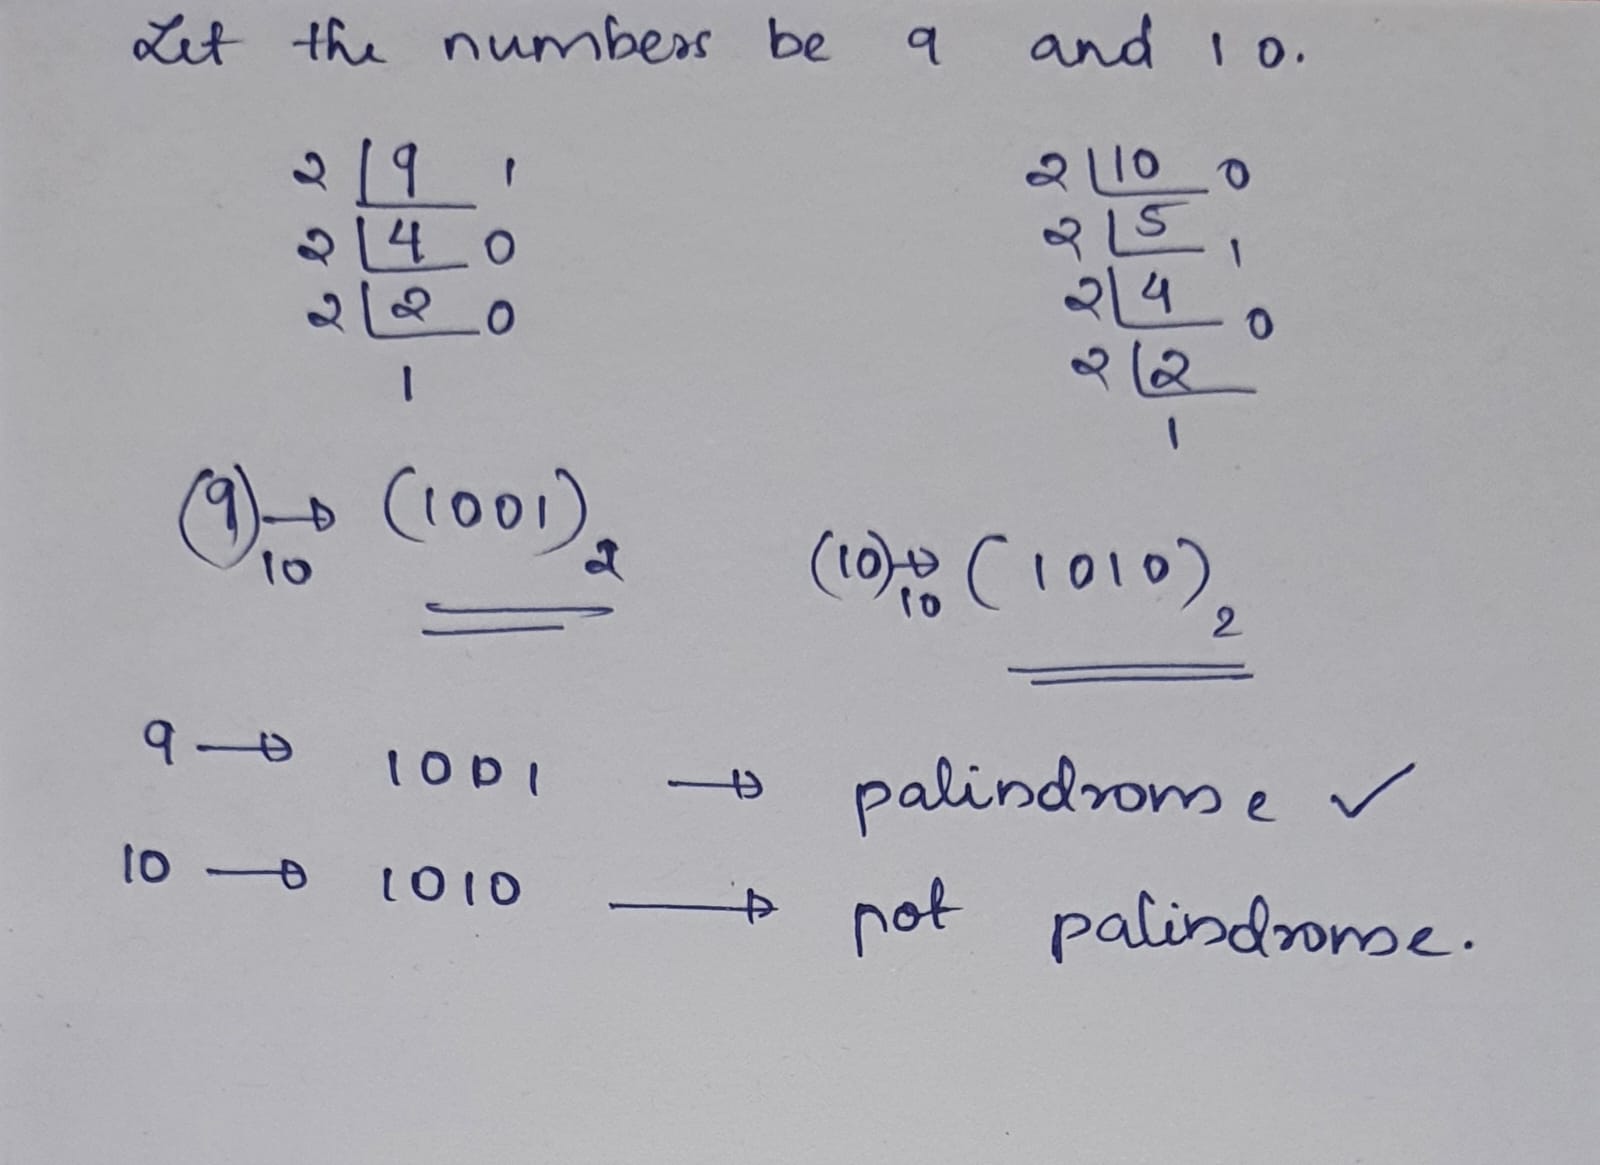 Let the numbers be 9 and 10.
2 | 9 1
2 | 4 0
2 | 2 0
1
2 | 10 0
2 | 5 1
2 | 4 0
2 | 2
1
(9)₁₀ → (1001)₂
(10)₁₀ → (1010)₂
9 → 1001 → palindrome ✓
10 → 1010 → not palindrome.